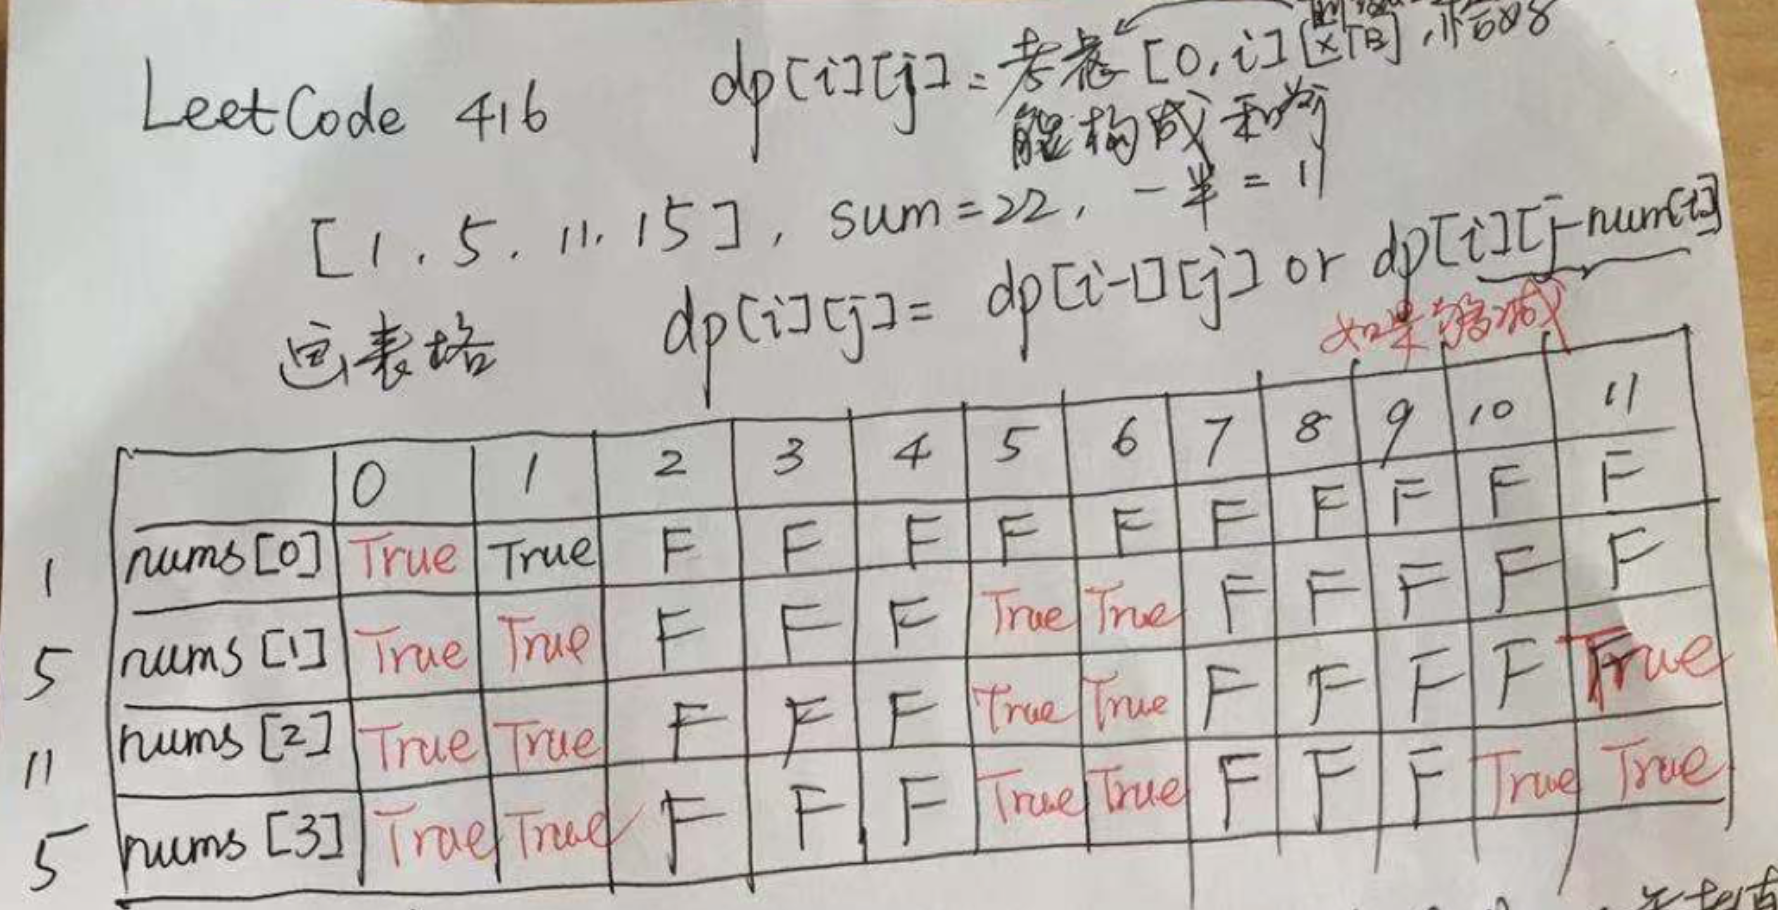 LeetCode 416
dp[i][j] = 考虑 [0,i] 区间
能构成和为j
[1, 5, 11, 15], sum=22, 一半 = 11
画表格 dp[i][j] = dp[i-1][j] or dp[i][j-num[i]]
如果够减
0 1 2 3 4 5 6 7 8 9 10 11
1 nums[0] True True F F F F F F F F F F
5 nums[1] True True F F F True True F F F F F
11 nums[2] True True F F F True True F F F F True
5 nums[3] True True F F F True True F F F True True